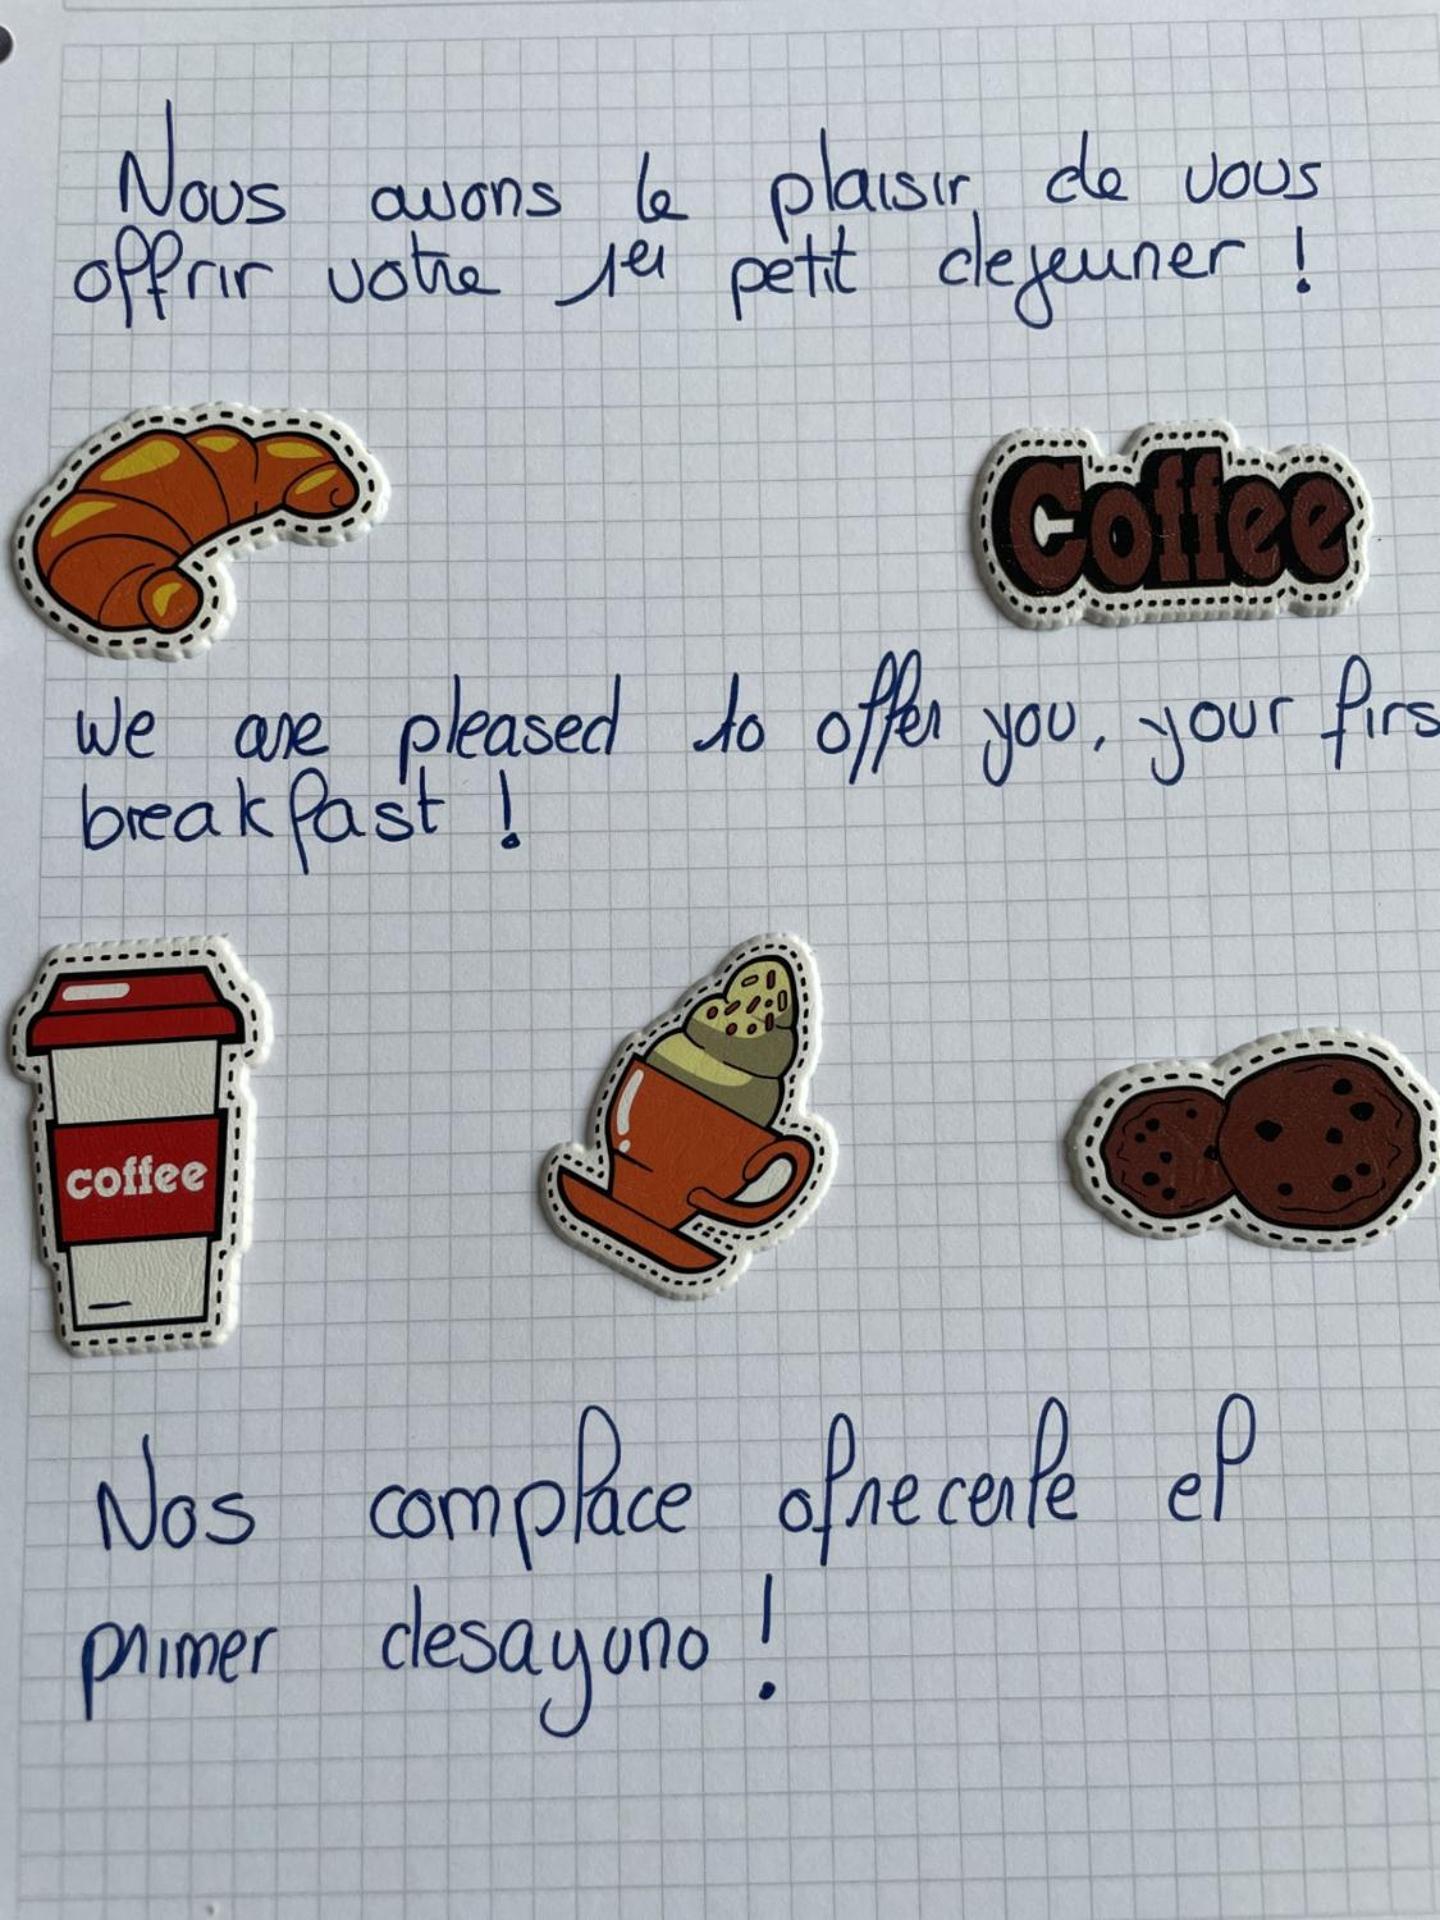 Nous avons le plaisir de vous
offrir votre 1er petit dejeuner !
Coffee
We are pleased to offer you, your firs
breakfast !
coffee
Nos complace ofrecerle el
primer desayuno !